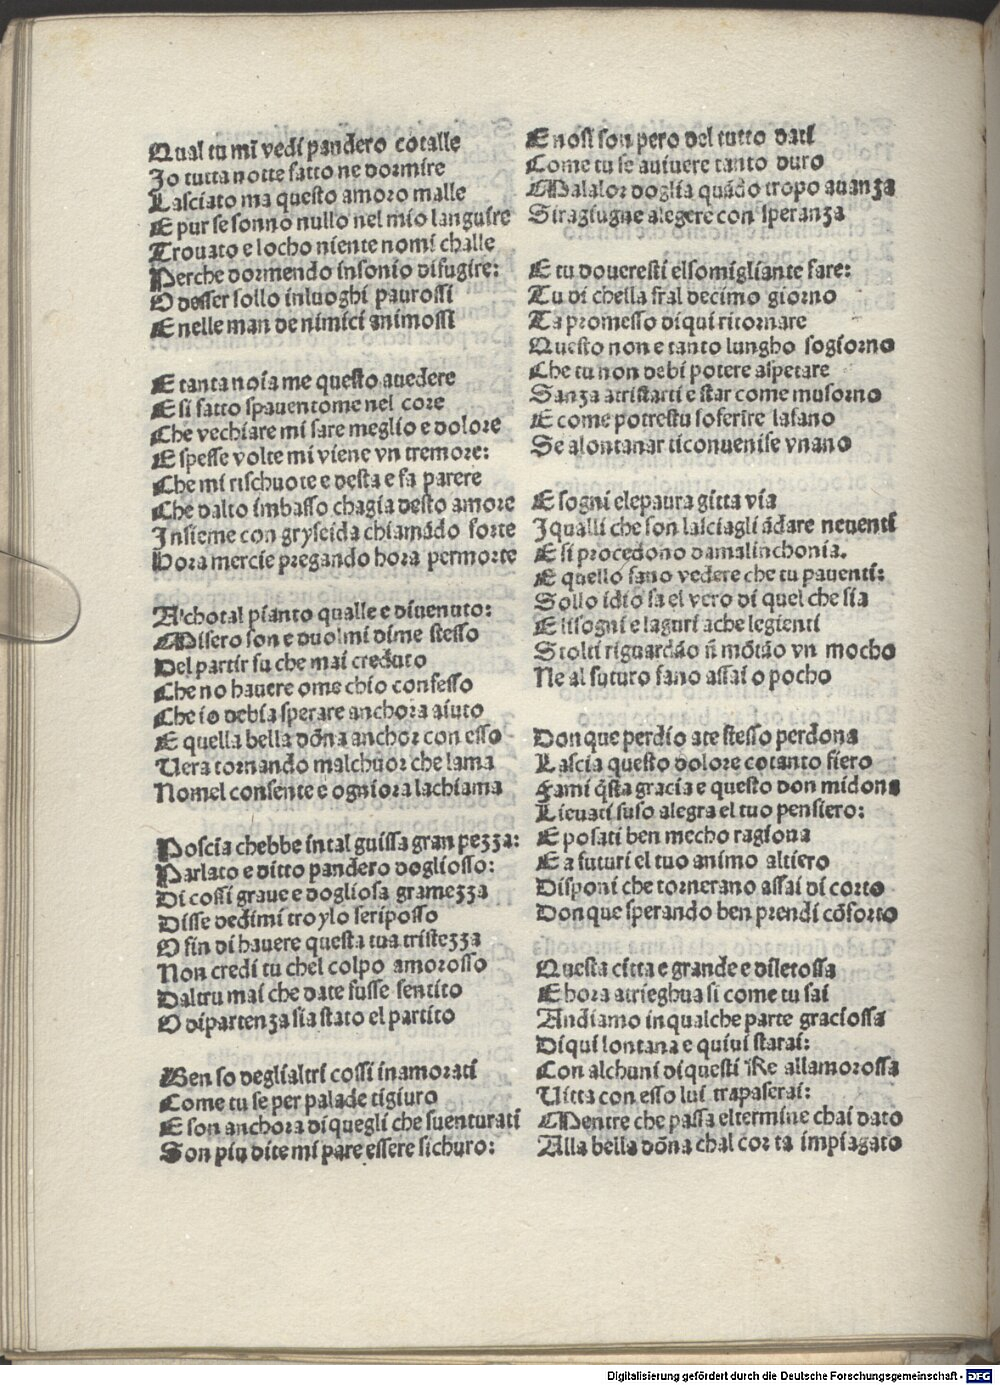 Qual tu mi vedi pandero cotalle
Io tutta notte fatto ne dormire
Lasciato ma questo amoro malle
E pur se sonno nullo nel mio languire
Trouato e locho niente nomi challe
Perche dormendo insonio difugire:
O desser sollo inluoghi paurossi
E nelle man de nimici animossi
E tanta noia me questo auedere
E si fatto spauentome nel core
Che vechiare mi sare meglio e dolore
E spesse volte mi viene vn tremore:
Che mi rischuote e desta e fa parere
Che dalto imbasso chagia desto amore
Insieme con gryseida chiamādo forte
Hora mercie pregando hora permorte
A'chotal pianto qualle e diuenuto:
Misero son e duolmi dime stesso
Del partir su che mai creduto
Che no hauere ome chio confesso
Che io debia sperare anchora aiuto
E quella bella dōna anchor con esso
Vera tornando malchuor che lama
Nomel consente e ogniora lachiama
Poscia chebbe in tal guissa gran pezza:
Parlato e ditto pandero dogliosso:
Di cossi graue e dogliosa gramezza
Disse dedimi troylo seriposso
O fin di hauere questa tua tristezza
Non credi tu chel colpo amorosso
Daltru mai che date fusse sentito
O dipartenza sia stato el partito
Ben so deglialtri cossi inamorati
Come tu se per palade tigiuro
E son anchora di quegli che suenturati
Son piu dite mi pare essere sichuro:
E nosi son pero del tutto dati
Come tu se auiuere tanto duro
Malalor doglia quādo tropo auanza
Siragiugne alegere con speranza
E tu doueresti elsomigliante fare:
Tu di chella fral decimo giorno
Ta promesso diqui ritornare
Questo non e tanto lungho sogiorno
Che tu non debi potere aspetare
Sanza atristarti e star come musorno
E come potrestu soferire lafano
Se alontanar ticonuenise vnano
E sogni elepaura gitta via
Iqualli che son lasciagli ādare neuenti
E si procedono damalinchonia.
E quello fano vedere che tu pauenti:
Sollo idio sa el vero di quel che sia
E lisogni e laguri ache legienti
Stolti riguardāo n̄ mōtāo vn mocho
Ne al futuro fano assai o pocho
Donque perdio ate stesso perdona
Lascia questo dolore cotanto fiero
Fami q̄sta gracia e questo don midona
Lieuati suso alegra el tuo pensiero:
E posati ben mecho ragiona
E a futuri el tuo animo altiero
Disponi che tornerano assai di corto
Donque sperando ben prendi cōforto
Questa citta e grande e diletossa
E hora atrieghua si come tu sai
Andiamo inqualche parte graciossa
Diqui lontana e quiui starai:
Con alchuni diquesti Re allamorossa
Uitta con esso lui trapaserai:
Mentre che passa eltermine chai dato
Alla bella dōna chal cor ta impiagato
Digitalisierung gefördert durch die Deutsche Forschungsgemeinschaft - DFG